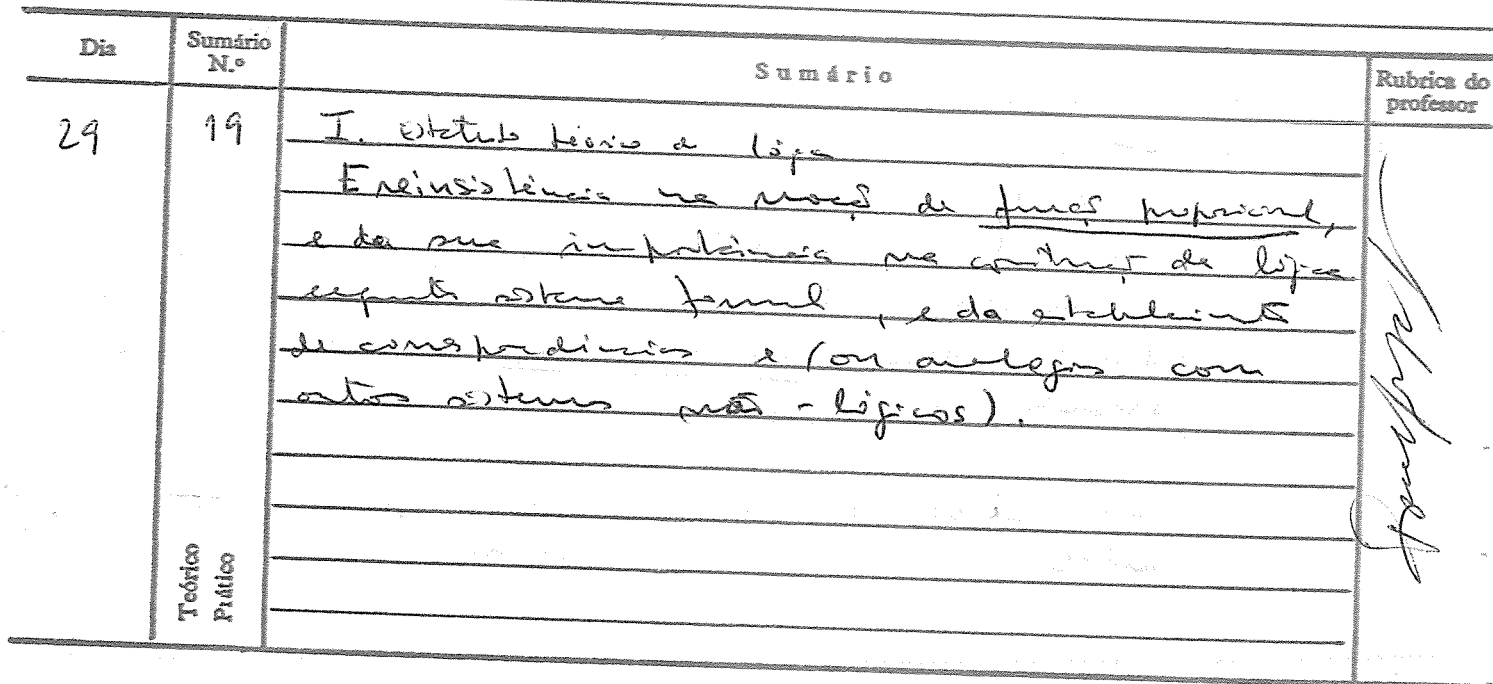 Dia
Sumário N.º
Sumário
Rubrica do professor
29
19
I. Estatuto teórico da lógica
E reinsistência na noção de função proposicional,
e da sua importância na construção da lógica
enquanto sistema formal, e do estabelecimento
de correspondências e (ou analogias com
outros sistemas não-lógicos).
Teórico
Prático